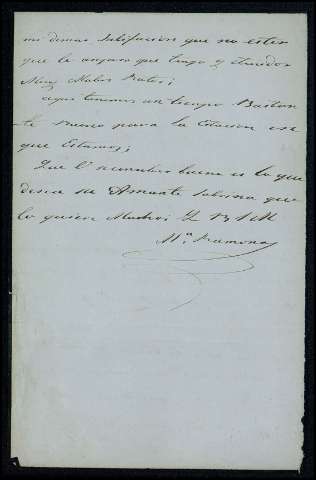 mi demas satisfacion que no ester
que le aseguro que tengo y
Muy Malos Ratos;
aqui tenemos un tiempo Bastan
te bueno para la Estacion en
que Estamos;
Que V. bueno es lo que
desea su Amante sobrina que
lo quiere Mucho; Y B S M
Mª. Ramona